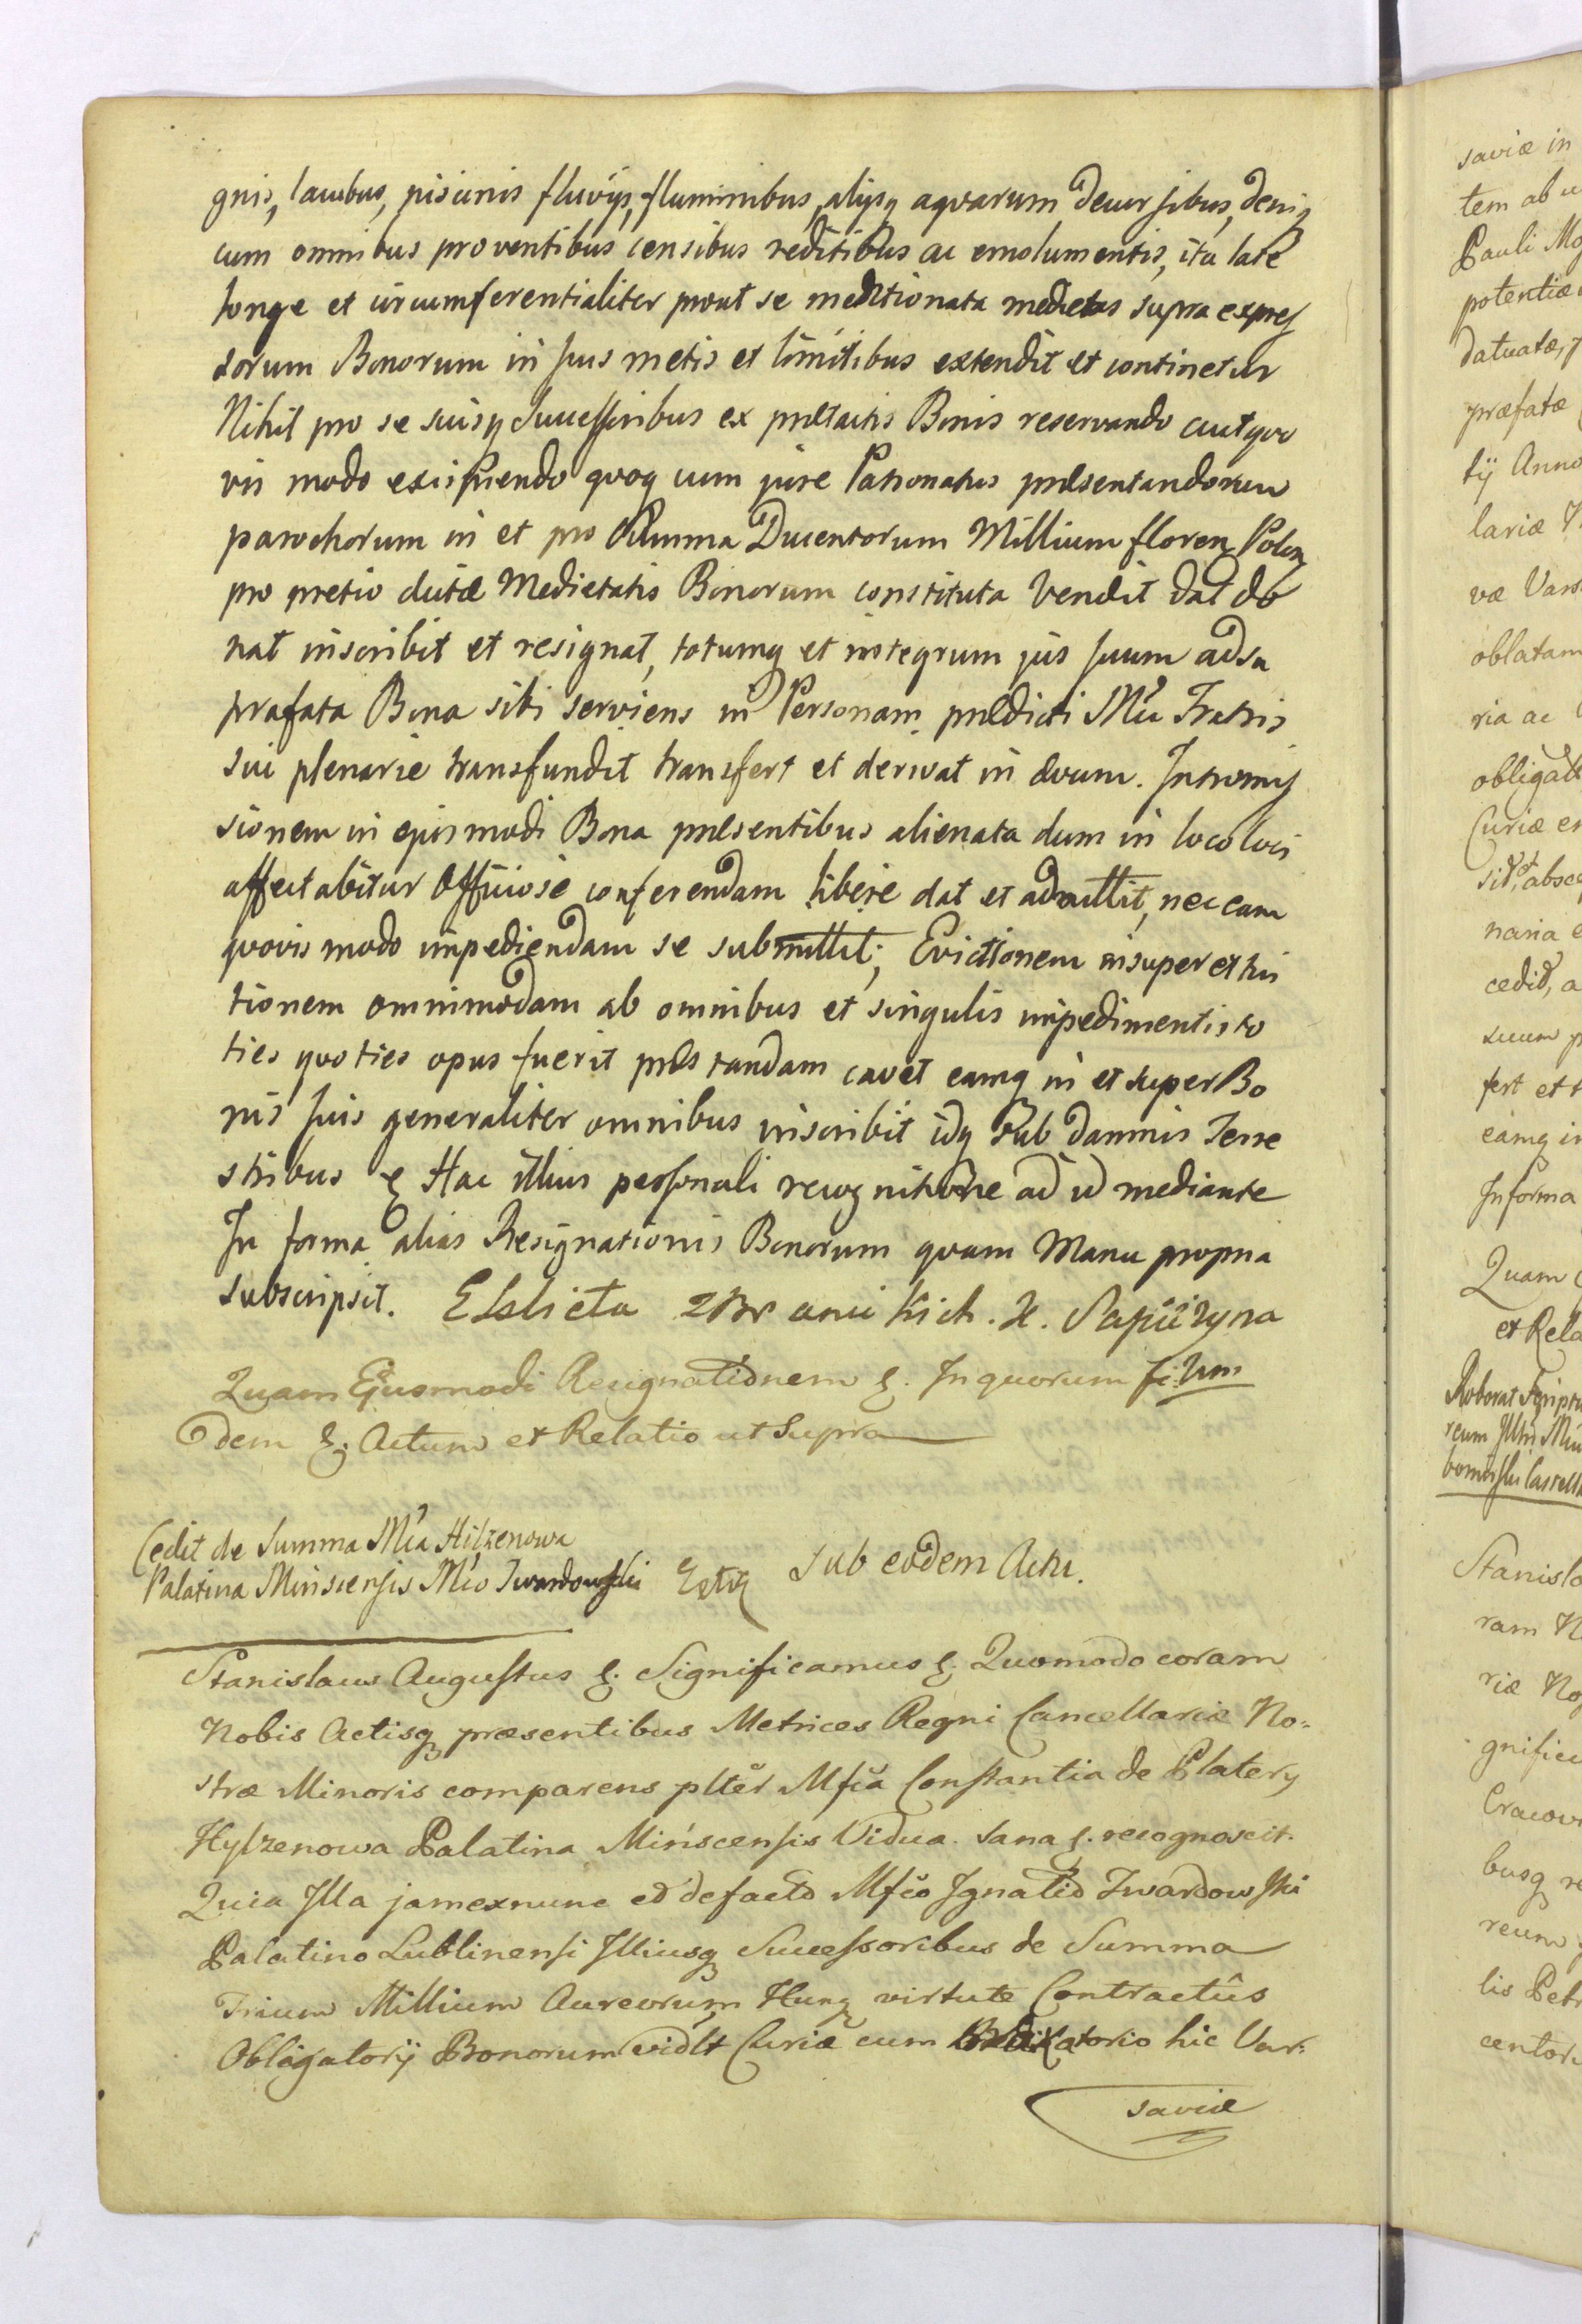 gnis, lacubus, piscinis fluvijs, fluminibus, alijsq aqvarum decursibus, deniq
cum omnibus proventibus censibus reditibus ac emolumentis, ita late
longe et circumferentialiter prout se mentionata medietas supra expres
sorum Bonorum in suis metis et limitibus extendit et continetur
Nihil pro se suisq Successoribus ex praetactis Bonis reservando aut qvo
vis modo excipiendo qvoq cum jure Patronatus praesentandorum
parochorum in et pro Summa Ducentorum Millium floren Polon
pro pretio dictae Medietatis Bonorum constituta Vendit dat do
nat inscribit et resignat, totumq et integrum jus suum ad su
prafata Bona sibi serviens in Personam praedicti Mci Fratris
sui plenarie transfundit transfert et derivat in aevum. Intromis
sionem in ejusmodi Bona praesentibus alienata dum in loco loci
affectabitur Officiose conferendam libere dat et admittit, nec eam
qvovis modo impediendam se submittit; Evictionem insuper et tui
tionem omnimodam ab omnibus et singulis impedimentis to
ties qvoties opus fuerit praestandam cavet eamq in et super Bo
nis suis generaliter omnibus inscribit idq sub damnis Terre
stribus & Hac illius personali recognitione ad id mediante
In forma alias Resignationis Bonorum qvam Manu propria
subscripsit. Elzbieta z Branickich. X. Sapiezyna
Quam Ejusmodi Resignationem &. In quorum fi:dem
dem &. Actum et Relatio ut Supra
Cedit de Summa Mca Hilzenowa
Palatina Minscensis Mco Twardowski
Sub eodem Actu.
Stanislaus Augustus &. Significamus &. Quomodo coram
Nobis Actisq praesentibus Metrices Regni Cancellariae No=
strae Minoris comparens plter Mfca Constantia de Platery
Hylzenowa Palatina Minscensis Vidua. Sana &. recognoscit.
Quia Illa jam ex nunc et de facto Mfco Ignatio Twardowski
Palatino Lublinensi Illiusq Successoribus de Summa
Trium Millium Aureorum Hung virtute Contractûs
Obligatorij Bonorum vidlt Curiae cum hic Var=
saviae